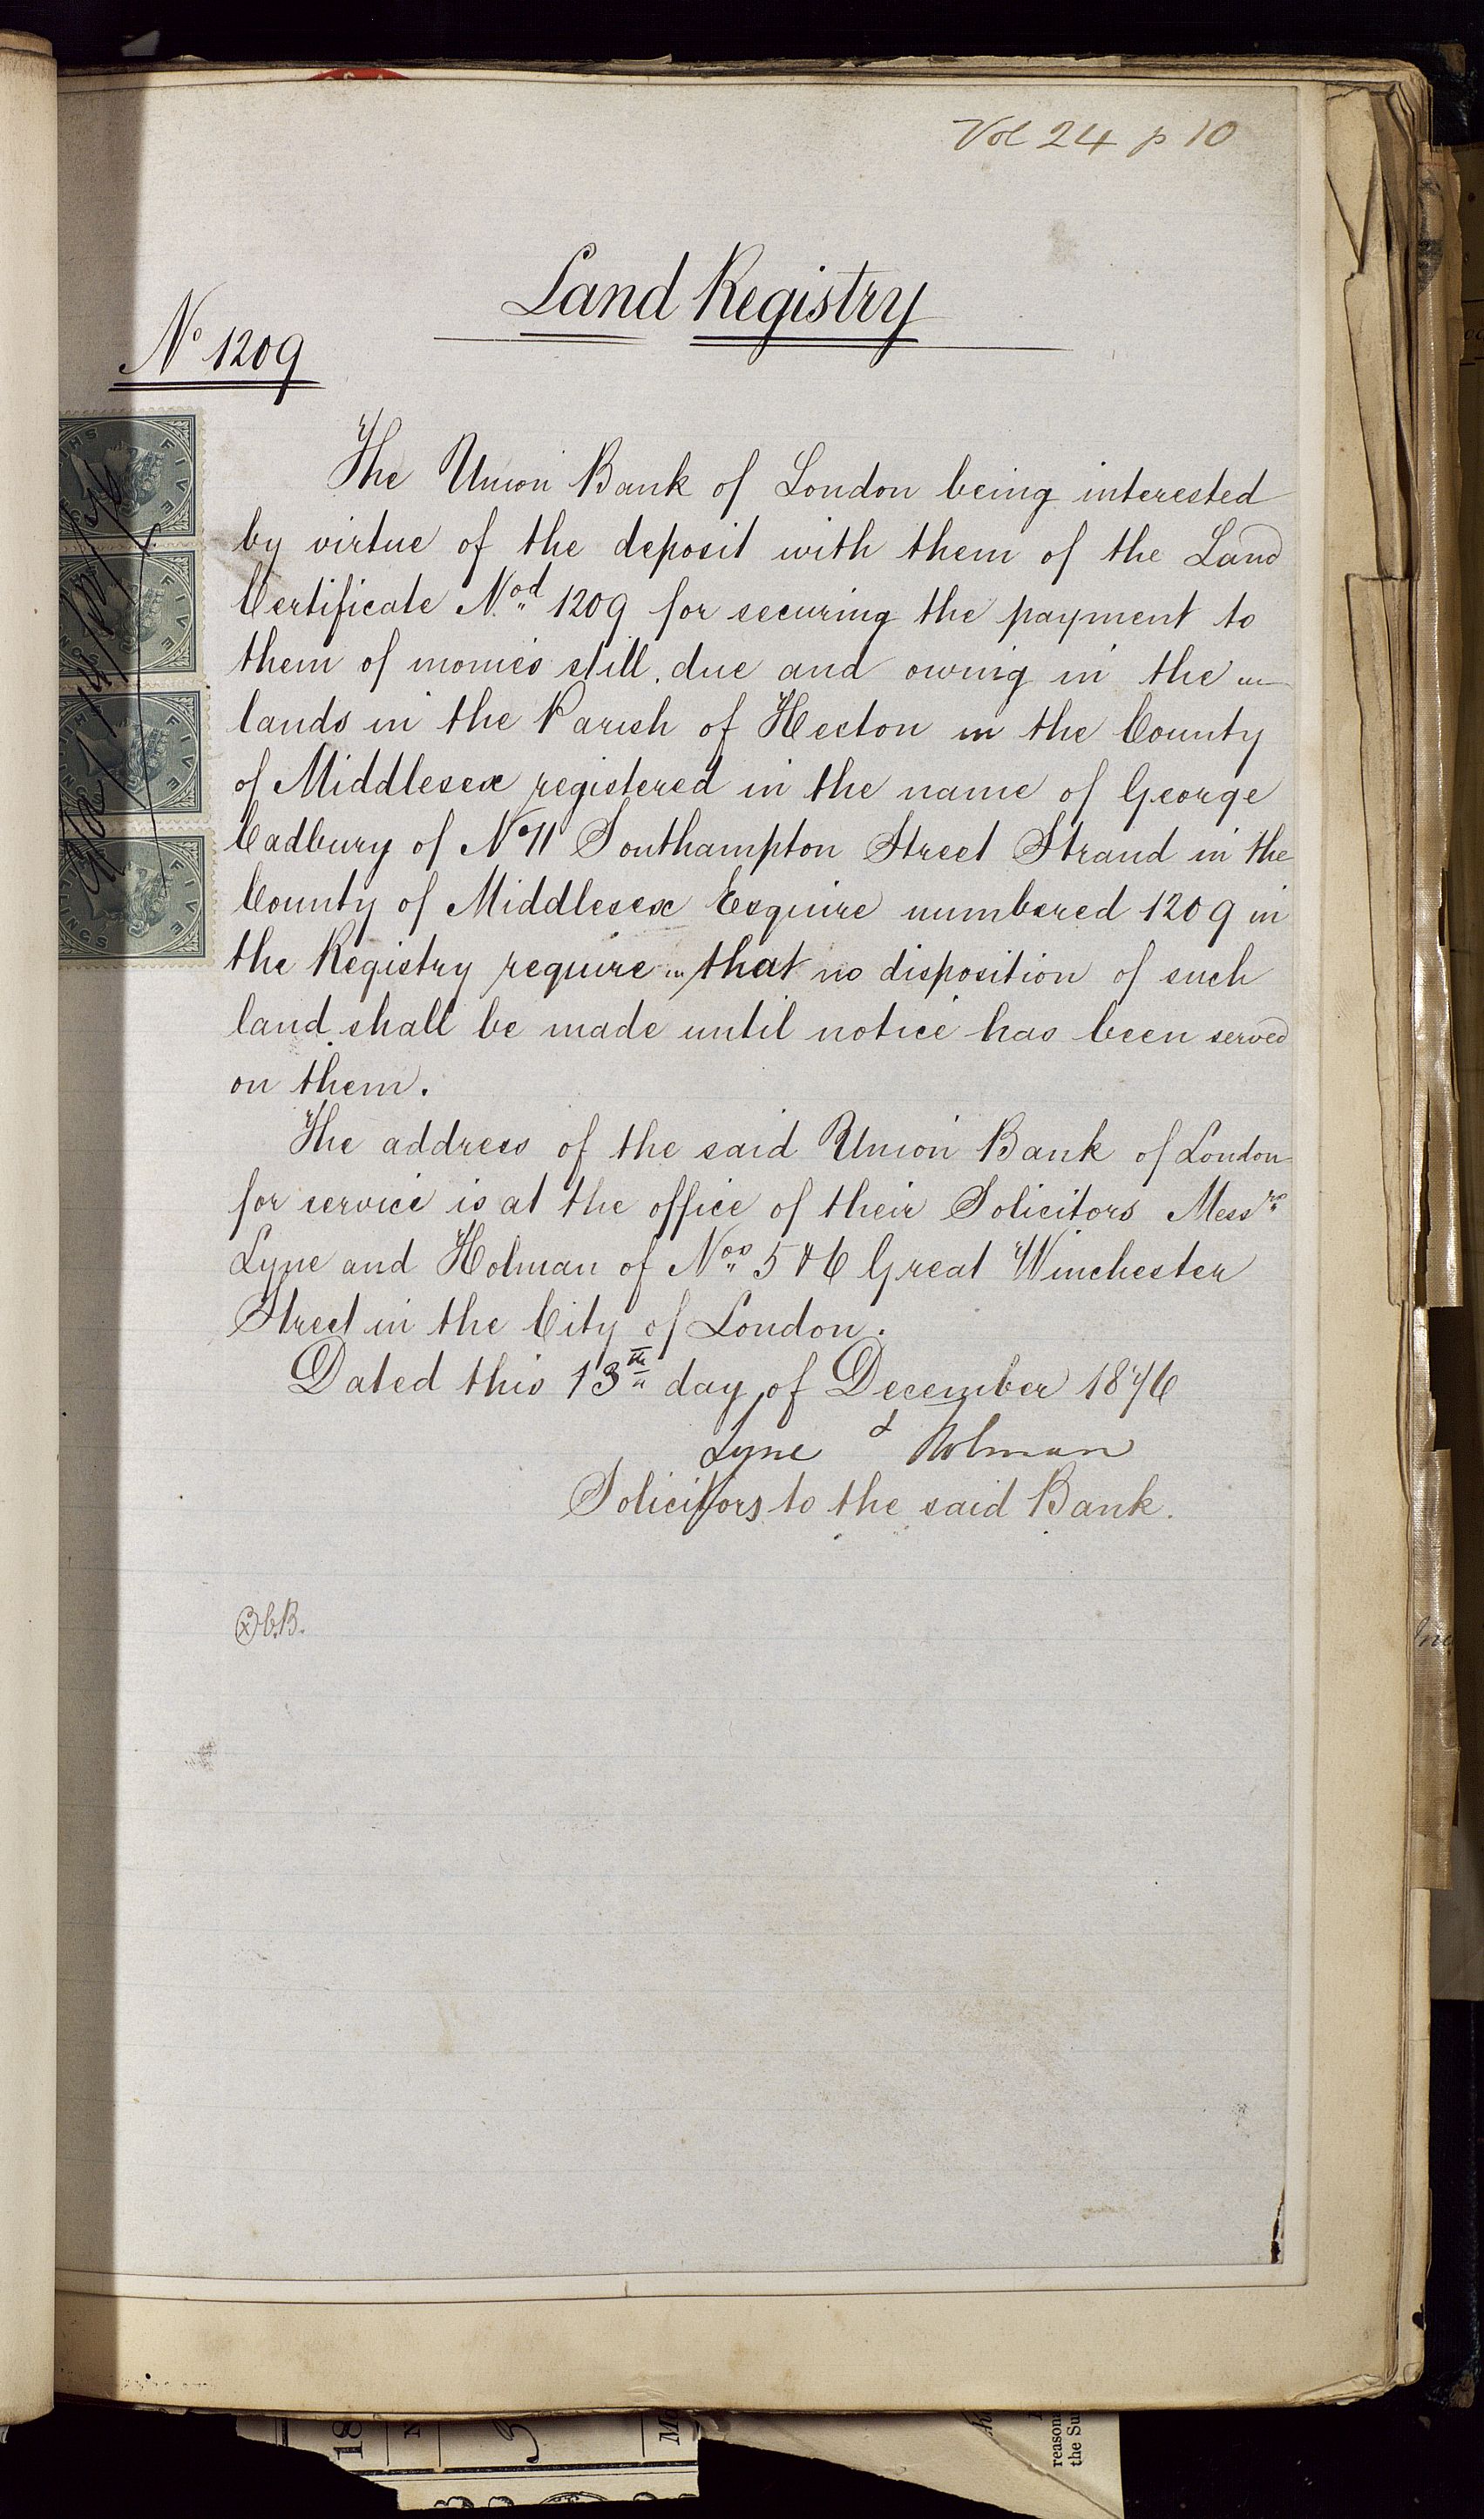 Vol 24 p 10
Land Registry
No 1209
The Union Bank of London being interested
by virtue of the deposit with them of the Land
Certificate No.d 1209 for securing the payment to
them of monies still due and owing in the
lands in the Parish of Heston in the County
of Middlesex registered in the name of George
Cadbury of No 11 Southampton Street Strand in the
County of Middlesex Esquire numbered 1209 in
the Registry require that no disposition of such
land shall be made until notice has been served
on them.
The address of the said Union Bank of London
for service is at the office of their Solicitors Messrs
Lyne and Holman of Nos 5 & 6 Great Winchester
Street in the City of London.
Dated this 13th day of December 1876
Lyne & Holman
Solicitors to the said Bank.
C.B.
FIVE
FIVE
FIVE
FIVE
18
3
reason
the Su